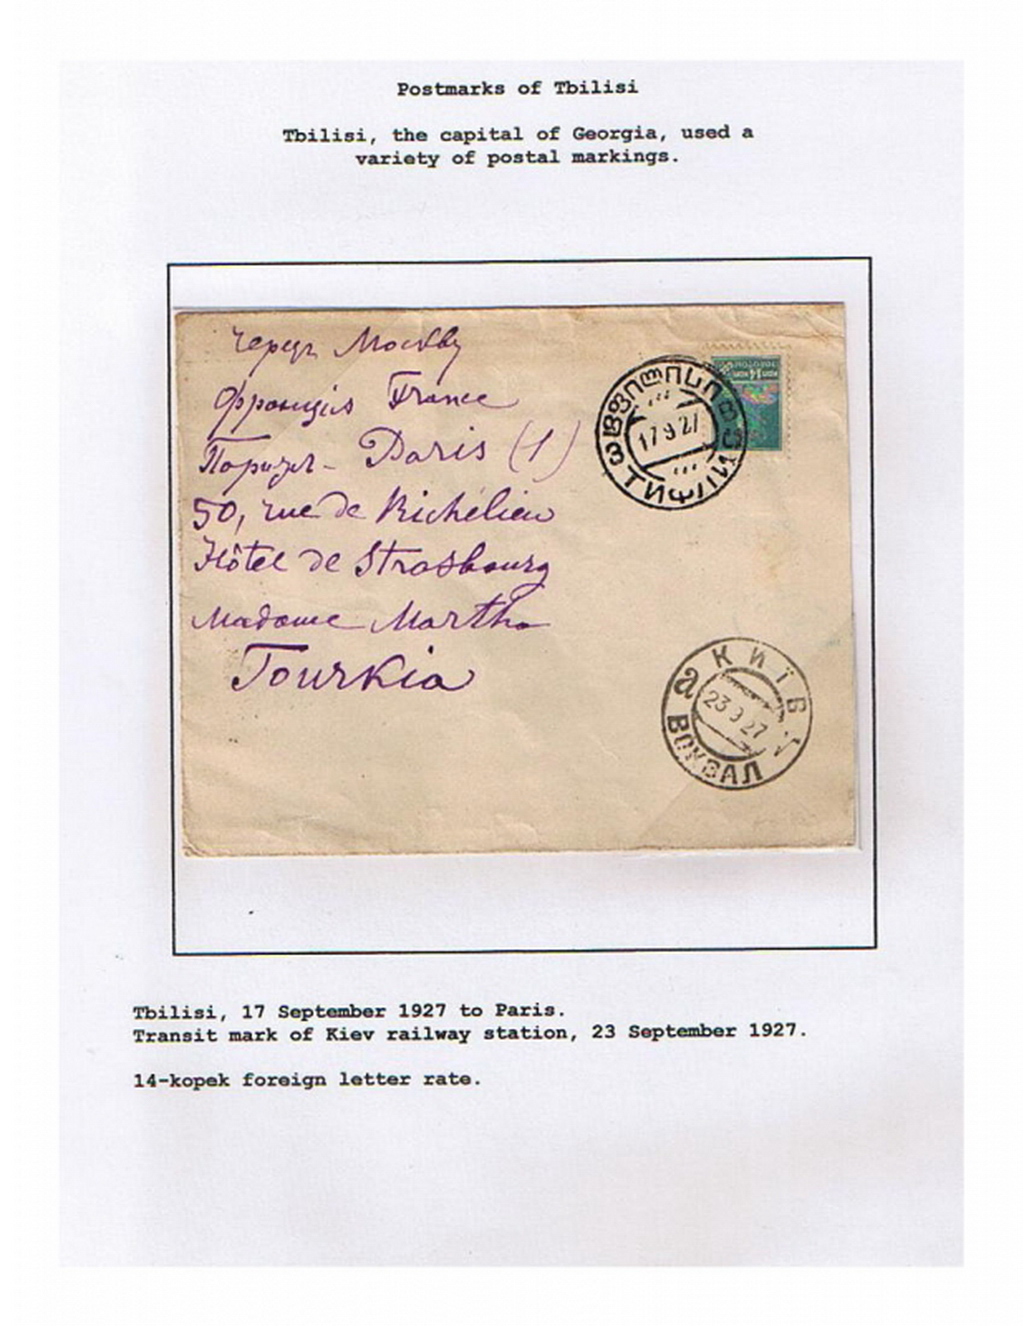 Postmarks of Tbilisi
Tbilisi, the capital of Georgia, used a
variety of postal markings.
Черезъ Москву
Франція France
Парижъ - Paris (1)
50, rue de Richelieu
Hôtel de Strasbourg
Madame Martha
Tourkia
ТИФЛИС
17 9 27
14 КОП
КИЇВ
а
23 9 27
ВОКЗАЛ
Tbilisi, 17 September 1927 to Paris.
Transit mark of Kiev railway station, 23 September 1927.
14-kopek foreign letter rate.